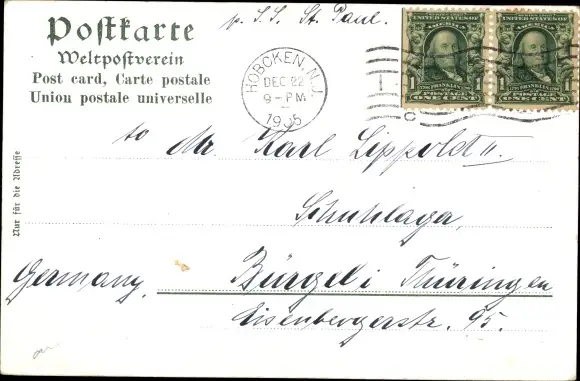 Postkarte
Weltpostverein
Post card, Carte postale
Union postale universelle
p. S.S. St. Paul.
HOBOKEN, N.J.
DEC 22
9-PM
1905
UNITED STATES OF AMERICA
1 FRANKLIN 1
POSTAGE
ONE CENT
UNITED STATES OF AMERICA
1 FRANKLIN 1
POSTAGE
ONE CENT
Nur für die Adresse
to Mr. Karl Lippoldt II.
Schuhlager,
Germany. Bürgel i Thüringen
Eisenbergerstr. 95.